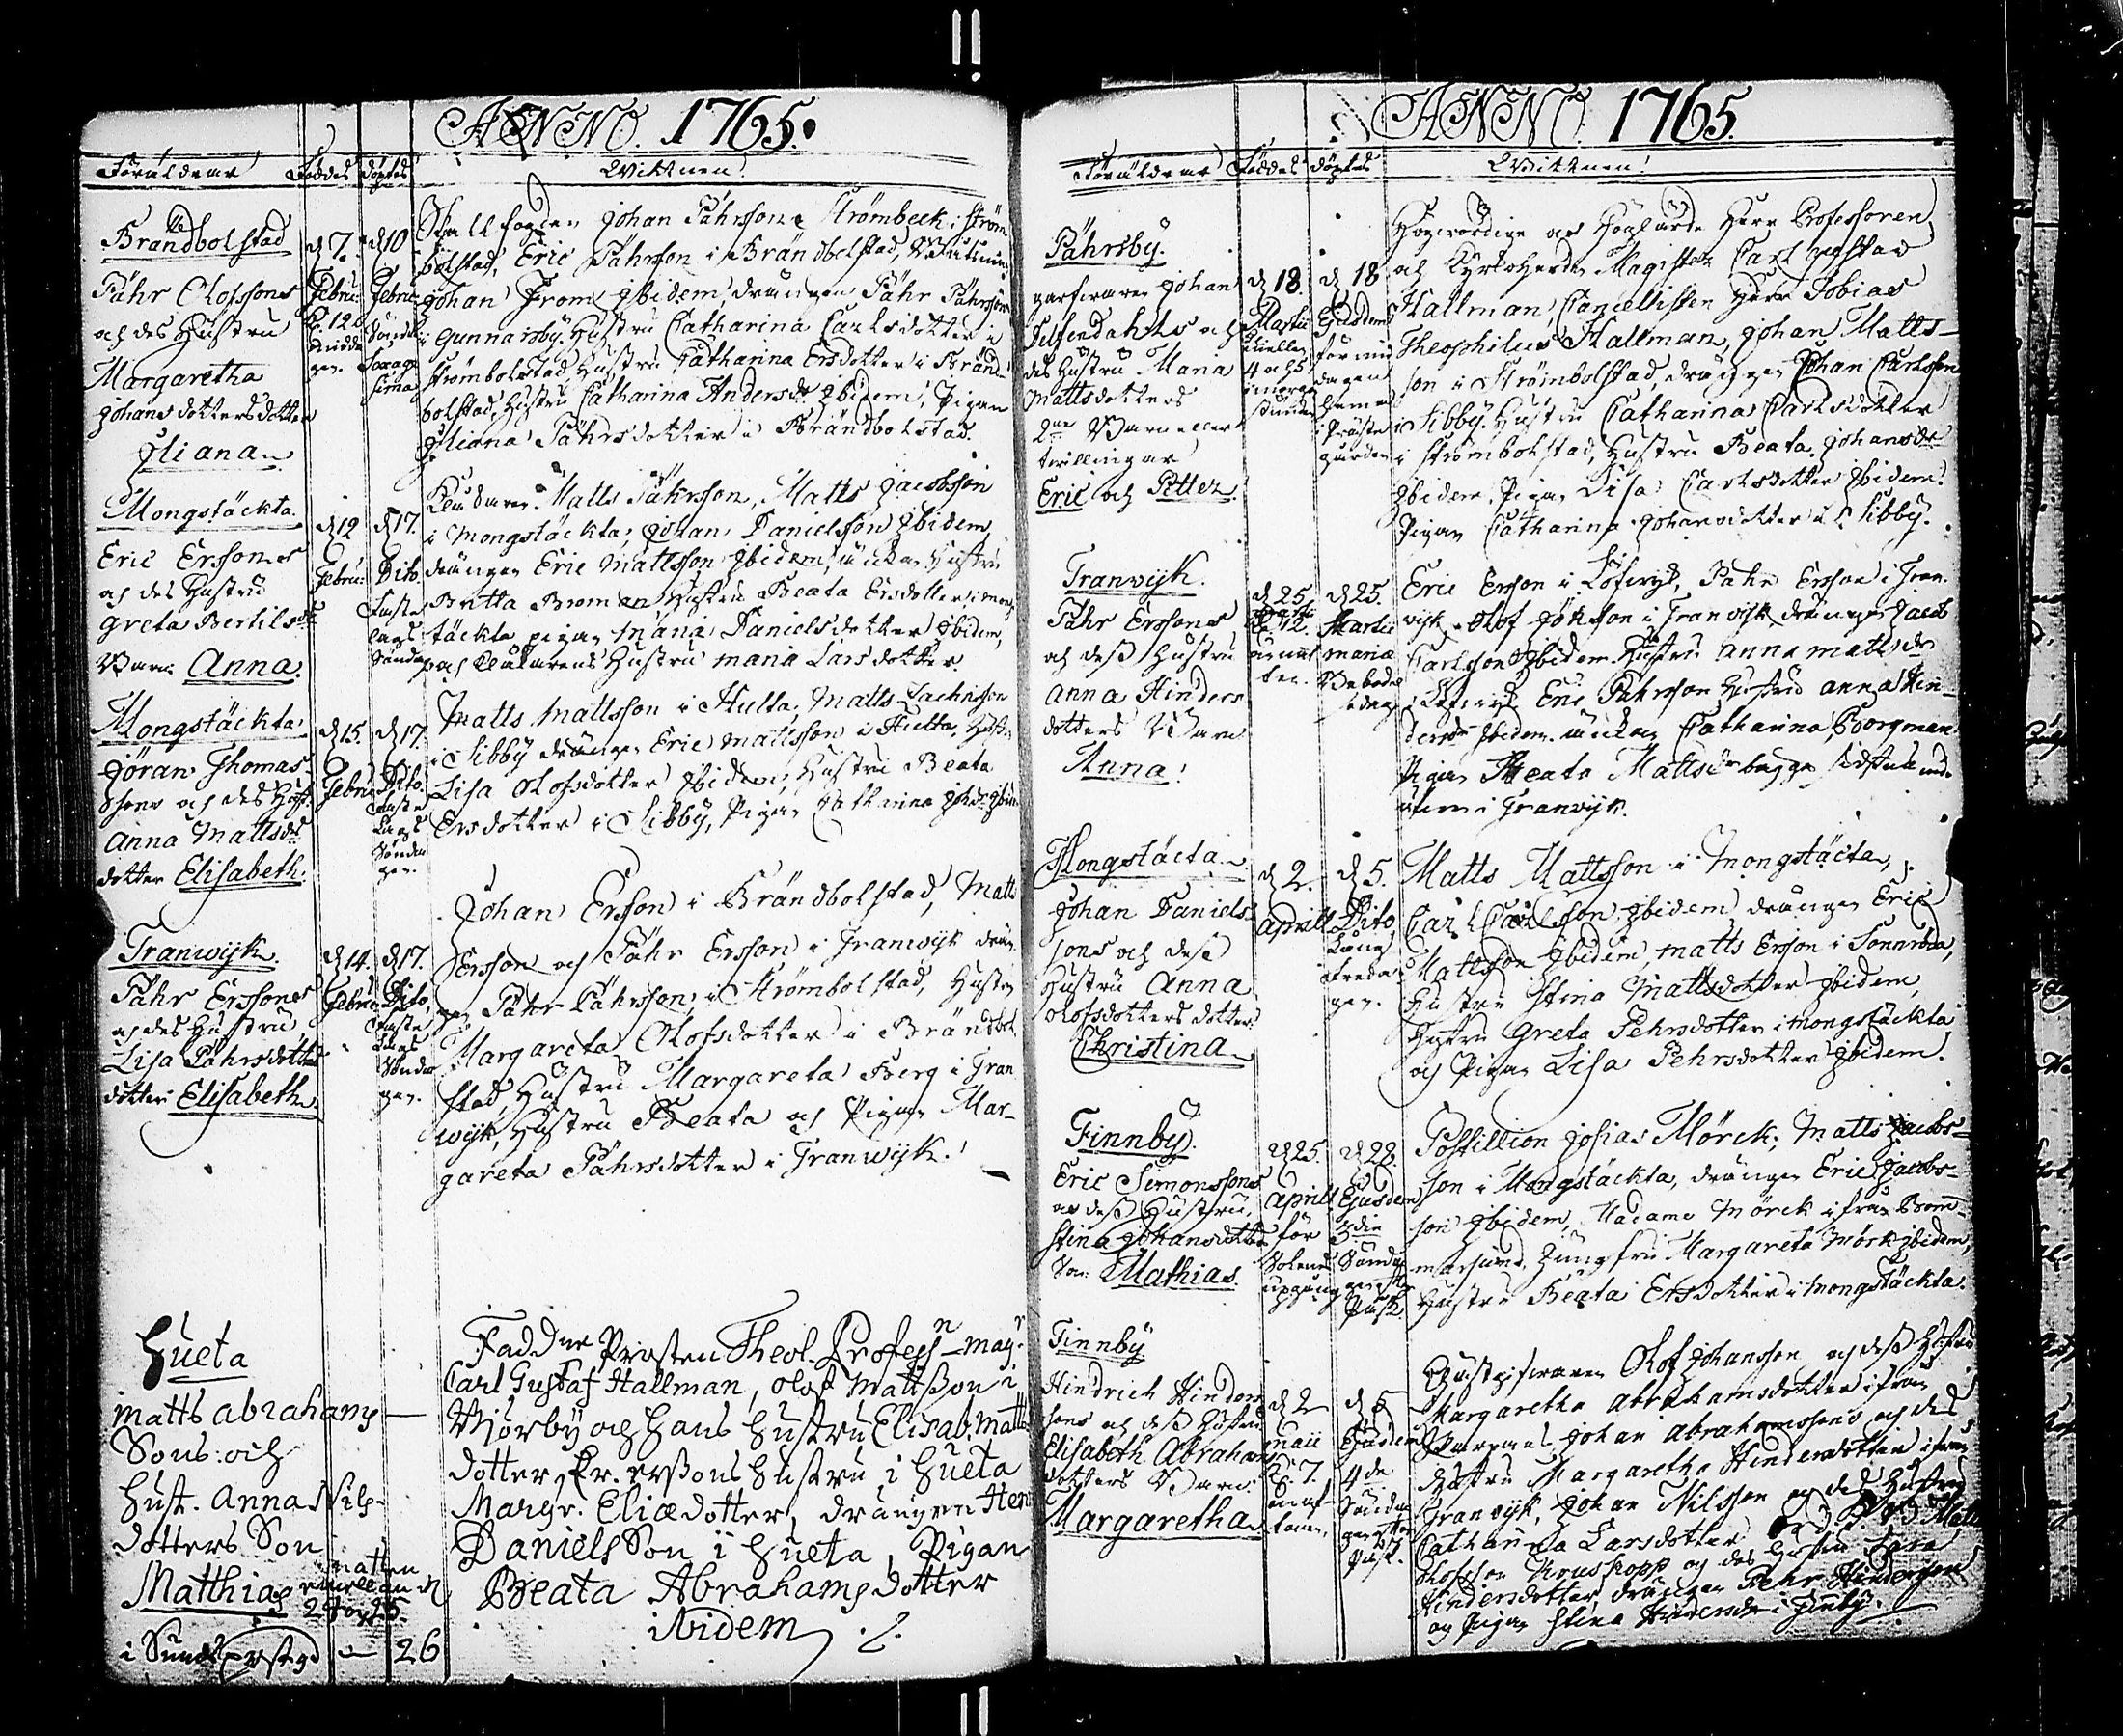 ANNO. 1765.
Föräldrar Föddes döptes Wittnen!
Brändbolstad
Pähr Olofssons
och des Hustru
Margaretha
Johansdotters dotter
Juliana
d 7. Febru:
Kl: 12
midda
gen.
d 10 Febru
Söndn
Sexage
sima
Johan Pährsson Strömbeck i Ström
bolstad, Eric Pährsson i Brändbolstad,
Johan From Ibidem, drängen Pähr Pährsson
i Gunnarsby. Hustru Catharina Carlsdotter i
Strömbolstad, Hustru Catharina Ersdotter i Bränd
bolstad, Hustru Catharina Andersdr Ibidem, Pigan
Juliana Pährsdotter i Brändbolstad.
Mongstäckta.
Eric Erssons
och des Hustru
Greta Bertilsdr
Barn Anna.
d 12
Febru:
d 17.
Dito.
Faste
lags
Söndag
Klåckaren Matts Pährsson, Matts Jacobsson
i Mongstäckta, Johan Danielsson Ibidem,
drängen Eric Mattsson Ibidem, Hustru
Britta Broman Hustru Beata Ersdotter i Mong
täckta pigan Maria Danielsdotter Ibidem,
och Klåckarens Hustru Maria Larsdotter.
Mongstäckta
Jöran Thomas
Sons och des Hust.
Anna Mattsdr
dotter Elisabeth.
d 15.
Febru
d 17.
Dito.
Faste
Lags
Sönda
gen.
Matts Mattsson i Hulta, Matts Zachrisson
i Sibby drängen Eric Mattsson i Hulta, Hustr.
Lisa Olofsdotter Ibidem, Hustru Beata
Ersdotter i Sibby, Pigan Catharina
Tranwijk.
Pähr Erssons
och des Hustru
Lisa Pährsdotters
dotter Elisabeth
d 14.
Febru
d 17.
Dito,
Faste
Lags
Sönda
gen.
Johan Ersson i Brändbolstad, Matts
Ersson och Pähr Ersson i Tranwijk drän
gen Pähr Pährsson i Strömbolstad, Hustru
Margareta Olofsdotter i Brändbol
stad, Hustru Margareta Berg i Tran
wijk, Hustru Beata och Pigan Mar-
gareta Pährsdotter i Tranwijk.
Hueta
Matts abrahams
Sons och
Hust. Anna Nils-
dotters Son
Matthias
natten
emellan d
24 og 25.
i Sunds 26
Faddrar Prosten Theol. Profess.n mag.r
Carl Gustaf Hallman, olof Mattsson i
Wiörby och hans hustru Elisab. Matts
dotter, Er. erssons hustru i Hueta
Margr. Eliædotter, drängen Hen
Daniels Son i Hueta, Pigan
Beata Abrahamsdotter
ibidem
ANNO. 1765.
Föräldrar Föddes döptes Wittnen!
Pährsby.
Johan
och
des Hustru Maria
Mattsdotters
2ne Barn eller
twillingar
Eric och Petter.
d 18.
Martii
emellan
4 och 5
d 18
Ejusdem
för mid
dagen
hemma
i Präste
gården
Högvördige och Höglärde Herr Professoren
och Kyrkoherden Magister Carl Gustav
Hallman, Cancellisten Herr Tobias
Theophilus Hallman, Johan Matts-
son i Strömbolstad, drängen Johan Carlsson
i Sibby. Hustru Catharina Carlsdotter
i Strömbolstad, Hustru Beata Johansdr
Ibidem, Pigan Lisa Carlsdotter Ibidem.
Pigan Catharina Johansdotter i Sibby.
Tranwijk.
Pähr Erssons
och dess Hustru
Anna Hinders
dotters Barn
Anna!
d 25
Martii
Kl 12.
d 25.
Martii
Mariæ
Bebodel
sedag
Eric Ersson i Löfwijk, Pähr Ersson i Tran
wijk Olof Jönsson i Tranwijk drängen Jacob
Carlsson Ibidem. Hustru Anna Mattsdr
i Löfwijk Eric Pährsson Hustru Anna Hin-
dersdr Ibidem. Catharina Borgman
Pigan Beata Mattsdr bägge
i Tranwijk.
Mongstäcta
Johan Daniels
sons och dess
Hustru Anna
Olofsdotters dotter
Christina
d 2.
Aprill
d 5.
Dito
Lång
Freda
gen.
Matts Mattsson i Mongstäcta,
Carl Carlsson Ibidem drängen Eric
Mattsson Ibidem, Matts Ersson i Sonnröda,
Hustru Stina Mattsdotter Ibidem,
Hustru Greta Pehrsdotter i Mongstäckta
och Pigan Lisa Pehrsdotter Ibidem.
Finnby.
Eric Simonssons
och dess Hustru,
Stina Johansdotters
Son Mathias.
d 25.
Aprill
för
Solenes
upgång
d 28.
Ejusdem
3die
Sönda
gen efter
Påsk.
Postillion Josias Mörck, Matts Jacobs-
son i Mongstäckta, drängen Eric Jacobs-
son Ibidem, Madame Mörck ifrån Bom-
marsund, Jungfru Margareta Mörk Ibidem,
Hustru Beata Ersdotter i Mongstäckta.
Finnby
Hindrich Hinders
sons och dess Hustru
Elisabeth Abrahams
dotters Barn
Margaretha
d 2
Maii
Kl. 7.
om af-
tonen.
d 5
Ejusdem
4de
Sönda
gen efter
Påsk.
Gästgifwaren Olof Johansson och dess Hustru
Margaretha Abrahamsdotter ifrån
Johan Abrahamssons och des
Hustru Margaretha Hindersdotter ifrån
Tranwijk, Johan Nilsson och des Hustru
Catharina Larsdotter
Olofsson Kruskopp og des Hustru Sara
Hindersdotter, drängen Pehr Hindersson
og Pigan Stina Hindersdr i Finby.